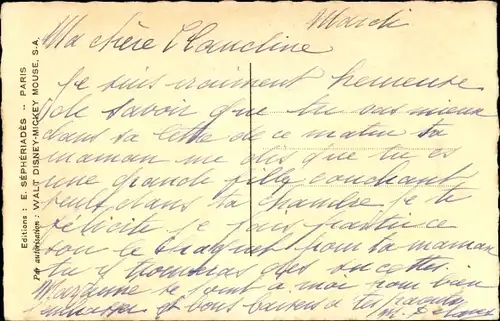 Mardi
Ma chère Claudine
Je suis vraiment heureuse
de savoir que tu vas mieux
dans sa lettre de ce matin ta
maman me dis que tu es
une grande fille couchant
seule dans ta chambre je te
félicite je fais
sou le paquet pour ta maman
tu y trouveras des sucettes
se joint à moi pour bien
embrasser et bons baisers à tes
Editions : E. SÉPHÉRIADÈS -- PARIS
Par autorisation : WALT DISNEY-MICKEY MOUSE, S.A.